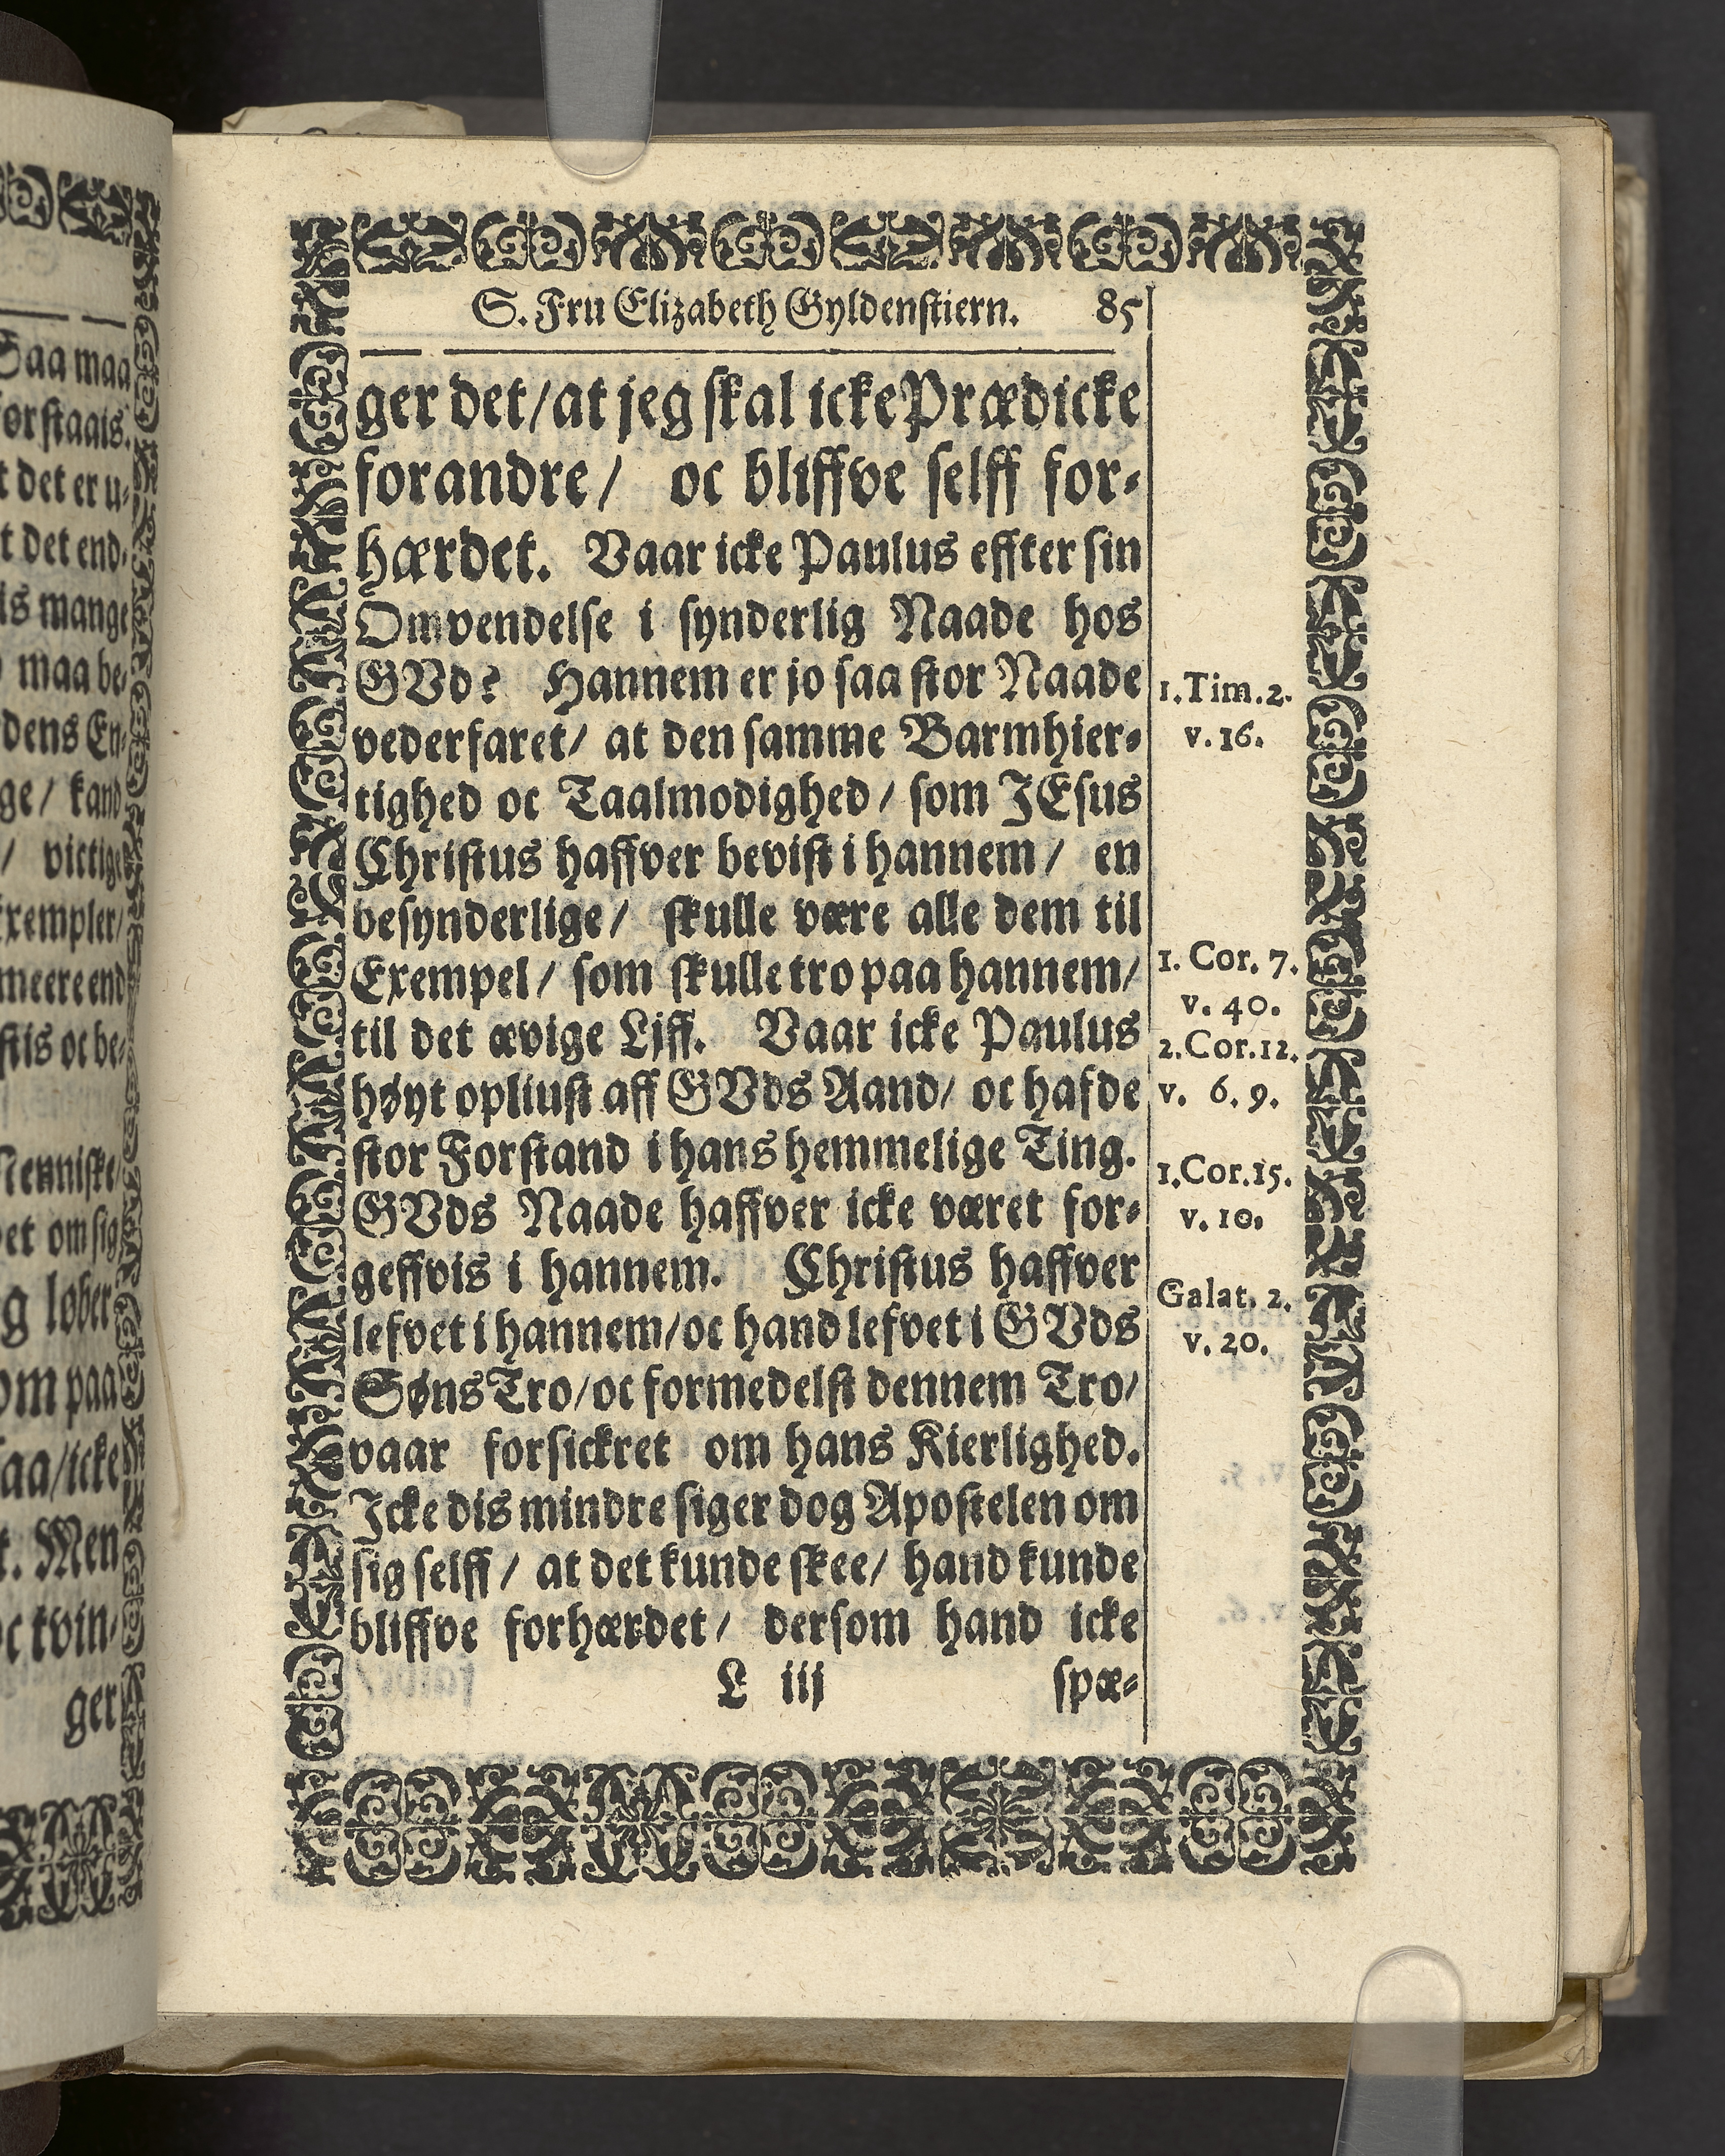 S. Fru Elizabeth Gyldenstiern. 85
ger det/ at jeg skal icke Prædicke
forandre/ oc bliffve selff for-
hærdet. Vaar icke Paulus effter sin
Omvendelse i synderlig Naade hos
GVd? Hannem er jo saa stor Naade
vederfaret/ at den samme Barmhier-
tighed oc Taalmodighed/ som JEsus
Christus haffver bevist i hannem/ en
besynderlige/ skulle være alle dem til
Exempel/ som skulle tro paa hannem/
til det ævige Liff. Vaar icke Paulus
høyt opliust aff GVds Aand/ oc hafde
stor Forstand i hans hemmelige Ting.
GVds Naade haffver icke været for-
geffvis i hannem. Christus haffver
lefvet i hannem/ oc hand lefvet i GVds
Søns Tro/ oc formedelst dennem Tro/
vaar forsickret om hans Kierlighed.
Icke dis mindre siger dog Apostelen om
sig selff/ at det kunde skee/ hand kunde
bliffve forhærdet/ dersom hand icke
L iij spæ-
1. Tim. 2.
v. 16.
1. Cor. 7.
v. 40.
2. Cor. 12.
v. 6. 9.
1. Cor. 15.
v. 10.
Galat. 2.
v. 20.
Saa maa
forstaais.
t det er u-
t det end-
is mange
maa be-
dens En-
ge/ kand
/ victige
Exempler/
meere end
stis oc be-
Menniske
et om sig
g løber
om paa
aa/ icke
t. Men
oc tvin-
ger